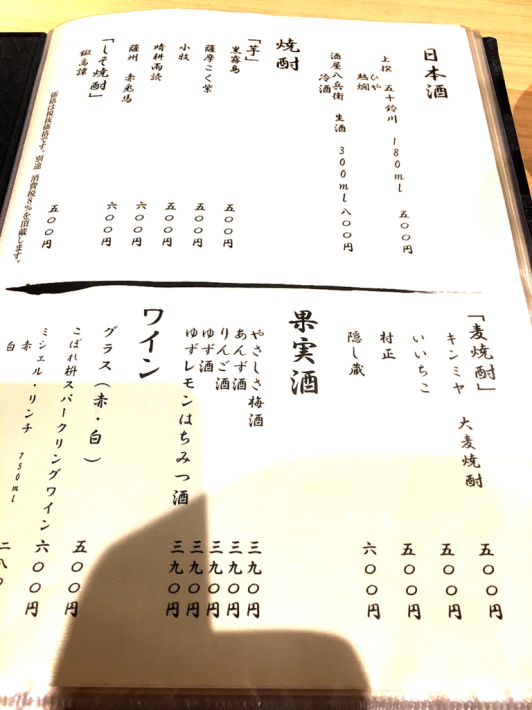 日本酒
上撰 五十鈴川 180ml 五〇〇円
ひや
熱燗
酒屋八兵衛 生酒 300ml 八〇〇円
冷酒
焼酎
「芋」
黒霧島 五〇〇円
薩摩こく紫 五〇〇円
小牧 五〇〇円
晴耕雨読 六〇〇円
薩州 赤兎馬 六〇〇円
「しそ焼酎」
鍛高譚 五〇〇円
価格は税抜価格です。別途 消費税8%を頂戴します。
「麦焼酎」
キンミヤ 大麦焼酎 五〇〇円
いいちこ 五〇〇円
村正 五〇〇円
隠し蔵 六〇〇円
果実酒
やさしさ梅酒 三九〇円
あんず酒 三九〇円
りんご酒 三九〇円
ゆず酒 三九〇円
ゆずレモンはちみつ酒 三九〇円
ワイン
グラス(赤・白) 五〇〇円
こぼれ枡スパークリングワイン 六〇〇円
ミシェル・リンチ 750ml 二八〇
赤
白